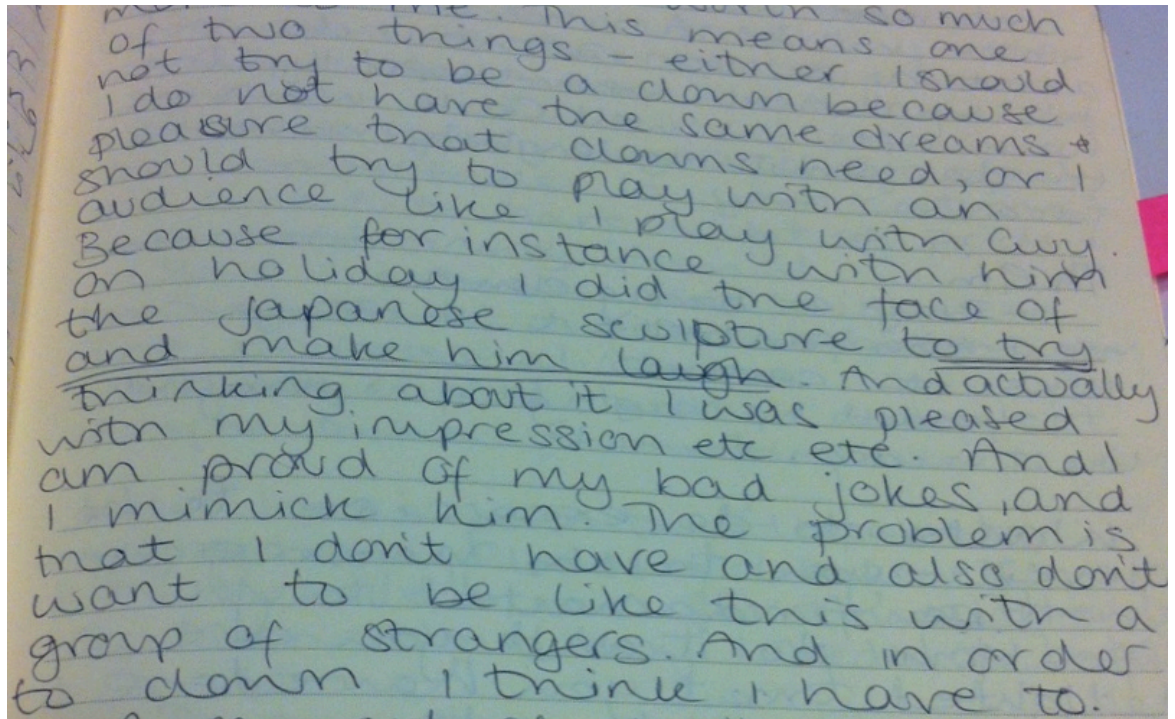 me. This worth so much
of two things – either I should
not try to be a clown because
I do not have the same dreams +
pleasure that clowns need, or I
should try to play with an
audience like I play with Guy.
Because for instance with him
on holiday I did the face of
the Japanese sculpture to try
and make him laugh. And actually
thinking about it I was pleased
with my impression etc etc. And I
am proud of my bad jokes, and
I mimick him. The problem is
that I don't have and also don't
want to be like this with a
group of strangers. And in order
to clown I think I have to.